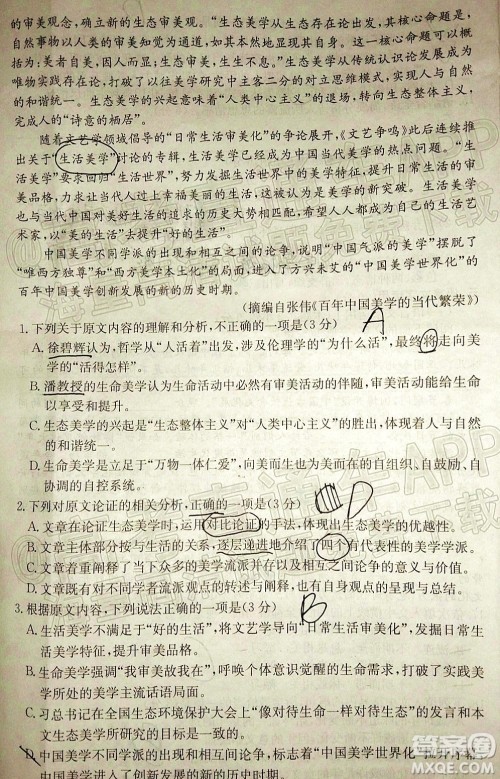 的审美观念,确立新的生态审美观。“生态美学从生态存在论出发,其核心命题是,
自然事物以人类的审美知觉为通道,如其本然地显现其自身。这一核心命题可以概
括为:美者自美,因人而显;生态审美,生生不息。”生态美学从传统认识论发展成为
唯物实践存在论,打破了以往美学研究中主客二分的对立思维模式,实现人与自然
的和谐统一。生态美学的兴起意味着“人类中心主义”的退场,转向生态整体主义,
完成人的“诗意的栖居”。
随着文艺学领域倡导的“日常生活审美化”的争论展开,《文艺争鸣》此后连续推
出关于“生活美学”讨论的专辑,生活美学已经成为中国当代美学的热点问题。“生
活美学”要求回归“生活世界”,努力发掘生活世界中的美学特征,提升日常生活的审
美品格,力求让当代人过上或者拥有幸福而美丽的生活。生活美学的这一审美追求
与当代中国对美好生活的追求的历史大势相匹配,希望人人都成为自己的生活艺
术家,以“美的生活”去提升“好的生活”。
中国美学不同学派的出现和相互之间的论争,说明“中国气派的美学”摆脱了
“唯西方独尊”和“西方美学本土化”的局易,进入了方兴未艾的“中国美学世界化”的
百年中国美学创新发展的新的历史时期。
(摘编自张伟《百年中国美学的当代繁荣》)
1.下列关于原文内容的理解和分析,不正确的一项是(3分) A
A.徐碧辉认为,哲学从“人活着”出发,涉及伦理学的“为什么活”,最终将走向美
学的“活得怎样”。
B.潘教授的生命美学认为生命活动中必然有审美活动的伴随,审美活动能给生命
以享受和提升。
C.生态美学的兴起是“生态整体主义”对“人类中心主义”的胜出,体现人与自然
的和谐统一。
D.生命美学是立足于“万物一体仁爱”,向美而生也为美而在的自组织、自鼓励、自
协调的自控系统。
2.下列对原文论证的相关分析,正确的一项是(3分) D
A.文章在论证生态美学时,运用对比论证的手法,体现出生态美学的优越性。
B.文章主体部分按与生活的关系、逐层递进地介绍了四个有代表性的美学学派。
C.文章着重阐释了当下众多的美学流派并以及相互之间论争的意义与价值。
D.文章既有对不同学者美学流派的转述与阐释,也有自身观点的呈现与表达。
3.根据原文内容,下列说法正确的一项是(3分) B
A.生活美学不满足于“好的生活”,将文艺学导向“日常生活审美化”,发掘生活美
学特征,提升审美品格。
B.生命美学强调“我审美故我在”,呼唤个体意识觉醒的生命前景,打破了实践美
学所处的美学主流话语局面。
C.习总书记在全国生态环境保护大会上“像对待生命一样对待生态”的论断与本
文生态美学所研究的目标是一致的。
D.中国美学不同学派的出现和相互间论争,标志着“中国美学世界化”
中国美学进入了创新发展的新的历史时期。
答案圈
MXQE.COM